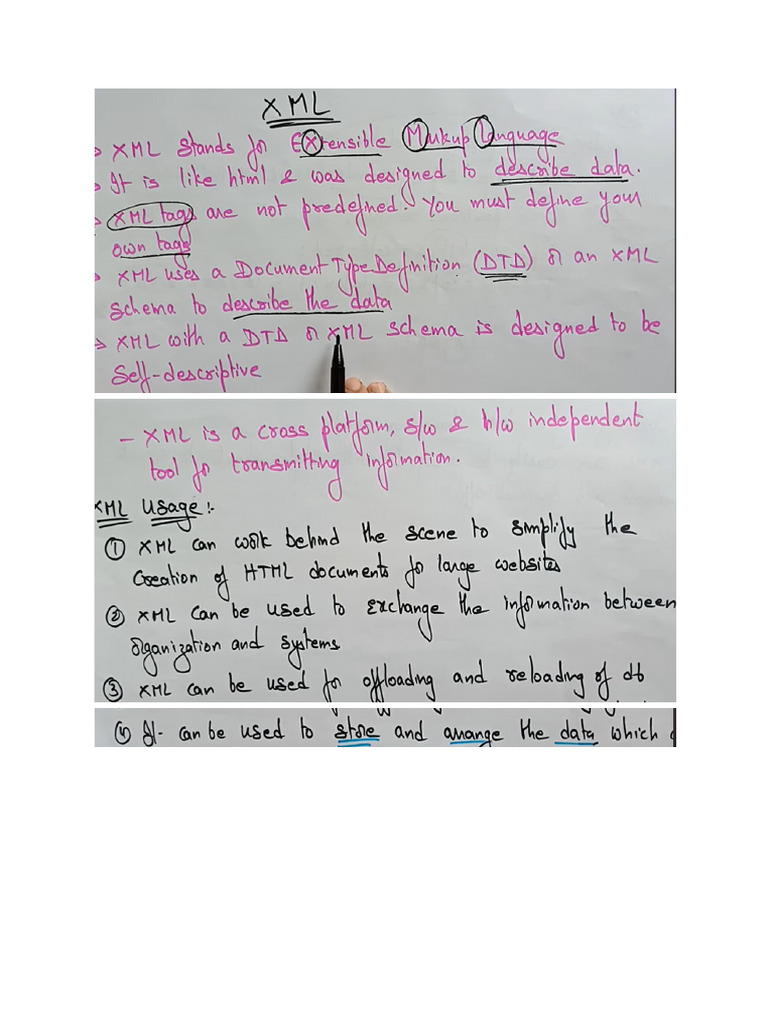 XML
> XML stands for EXtensible Markup Language
> It is like html & was designed to describe data.
> XML tags are not predefined. You must define your
own tags
> XML uses a Document Type Definition (DTD) or an XML
Schema to describe the data
> XML with a DTD or XML Schema is designed to be
Self-descriptive
- XML is a cross platform, s/w & h/w independent
tool for transmitting information.
XML Usage :-
① XML can work behind the scene to simplify the
Creation of HTML documents for large websites
② XML can be used to exchange the information between
organization and systems
③ XML can be used for offloading and reloading of db
④ It can be used to store and arrange the data which